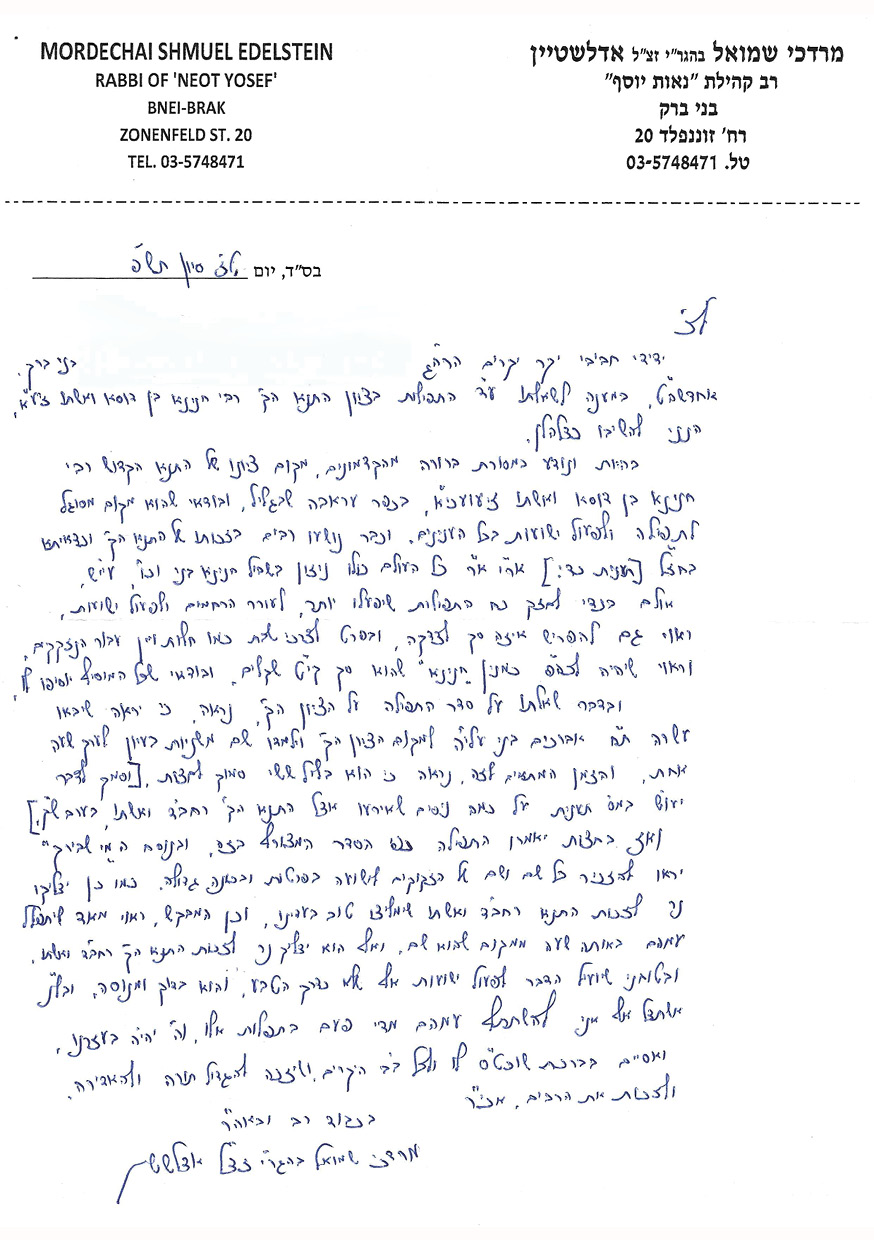 MORDECHAI SHMUEL EDELSTEIN
RABBI OF 'NEOT YOSEF'
BNEI-BRAK
ZONENFELD ST. 20
TEL. 03-5748471
מרדכי שמואל בהגר"י זצ"ל אדלשטיין
רב קהילת "נאות יוסף"
בני ברק
רח' זוננפלד 20
טל. 03-5748471
בס"ד, יום סיון תש"פ
ידידי חביבי יקר יקרים הרה"ג בני ברק.
אחדשה"ט, במענה לשאלתו ע"ד התפילות בציון התנא הק' רבי חנינא בן דוסא ואשתו זיע"א,
הנני להשיבו כדלהלן.
בהיות ונודע במסורת ברורה מהקדמונים, מקום ציונו של התנא הקדוש רבי
חנינא בן דוסא ואשתו זיעועכי"א, בכפר עראבה שבגליל, ובודאי שהוא מקום מסוגל
לתפילה ולפעול ישועות בכל הענינים. וכבר נושעו רבים בזכותו של התנא הק' וכדאיתא
בחז"ל [תענית כד:] אר"י א"ר כל העולם כולו ניזון בשביל חנינא בני וכו', עיי"ש,
אולם בכדי לחזק כח התפילות שיפעלו יותר, לעורר הרחמים ולפעול ישועות,
ראוי גם להפריש איזה סך לצדקה, ובפרט לצרכי שבת כמו חלות ויין עבור הנזקקים,
וראוי שיהיה לכה"פ כמנין "חנינא" שהוא סך קי"ט שקלים, ובודאי שכל המוסיף יוסיפו לו,
ובדבר שאלתו על סדר התפילה על הציון הק', נראה, כי יראה שיבאו
עשרה ת"ח אברכים בני עליה למקום הציון הק' וילמדו שם משניות בעיון לערך שעה
אחת, והזמן המתאים לזה, נראה כי הוא בליל ששי סמוך לחצות, [וסמך לדבר
יעוי' במס' תענית על כמה ניסים שאירעו אצל התנא הק' רחב"ד ואשתו, בערב ש"ק,]
ואז בחצות יאמרו התפילה כפי הסדר המצורף בזה, ובנוסח ה"מי שבירך"
יראו להזכיר כל שם ושם של הזקוקים לישועה בפרטות ובכונה גדולה. כמו כן ידליקו
נר לזכות התנא רחב"ד ואשתו שימליצו טוב בעדינו, וכן המבקש, ראוי מאד שיתפלל
עמהם באותה שעה ממקום שהוא שם, ואף הוא ידליק נר לזכות התנא הק' רחב"ד ואשתו,
ובטוחני שיועיל הדבר לפעול ישועות אף שלא כדרך הטבע, והוא בדוק ומנוסה, ובל"נ
אשתדל אף אני להשתתף עמהם מדי פעם בתפלות אלו, וה' יהיה בעזרנו,
ואסיים בברכת שוכט"ס לו ולכל ב"ב היקרים, ושיזכה להגדיל תורה ולהאדירה,
ולזכות את הרבים, אכי"ר
בכבוד רב ובאוה"ר
מרדכי שמואל בהגר"י זצ"ל אדלשטיין